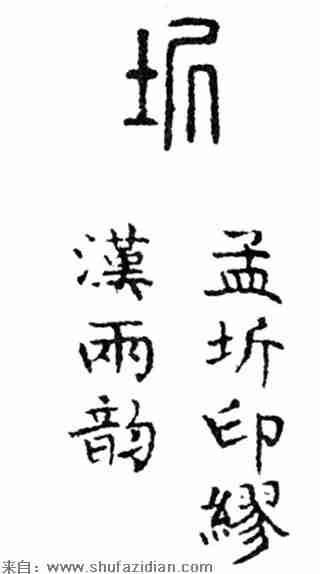 圻
孟圻印繆
漢兩韵
来自：www.shufazidian.com